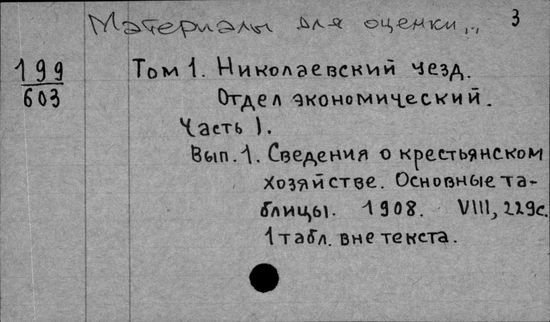 Материалы для оценки...
3
199
603
Том 1. Николаевский уезд.
Отдел экономический.
Часть I.
Вып. 1. Сведения о крестьянском
хозяйстве. Основные та-
блицы. 1908. VIII, 229с.
1 табл. вне текста.